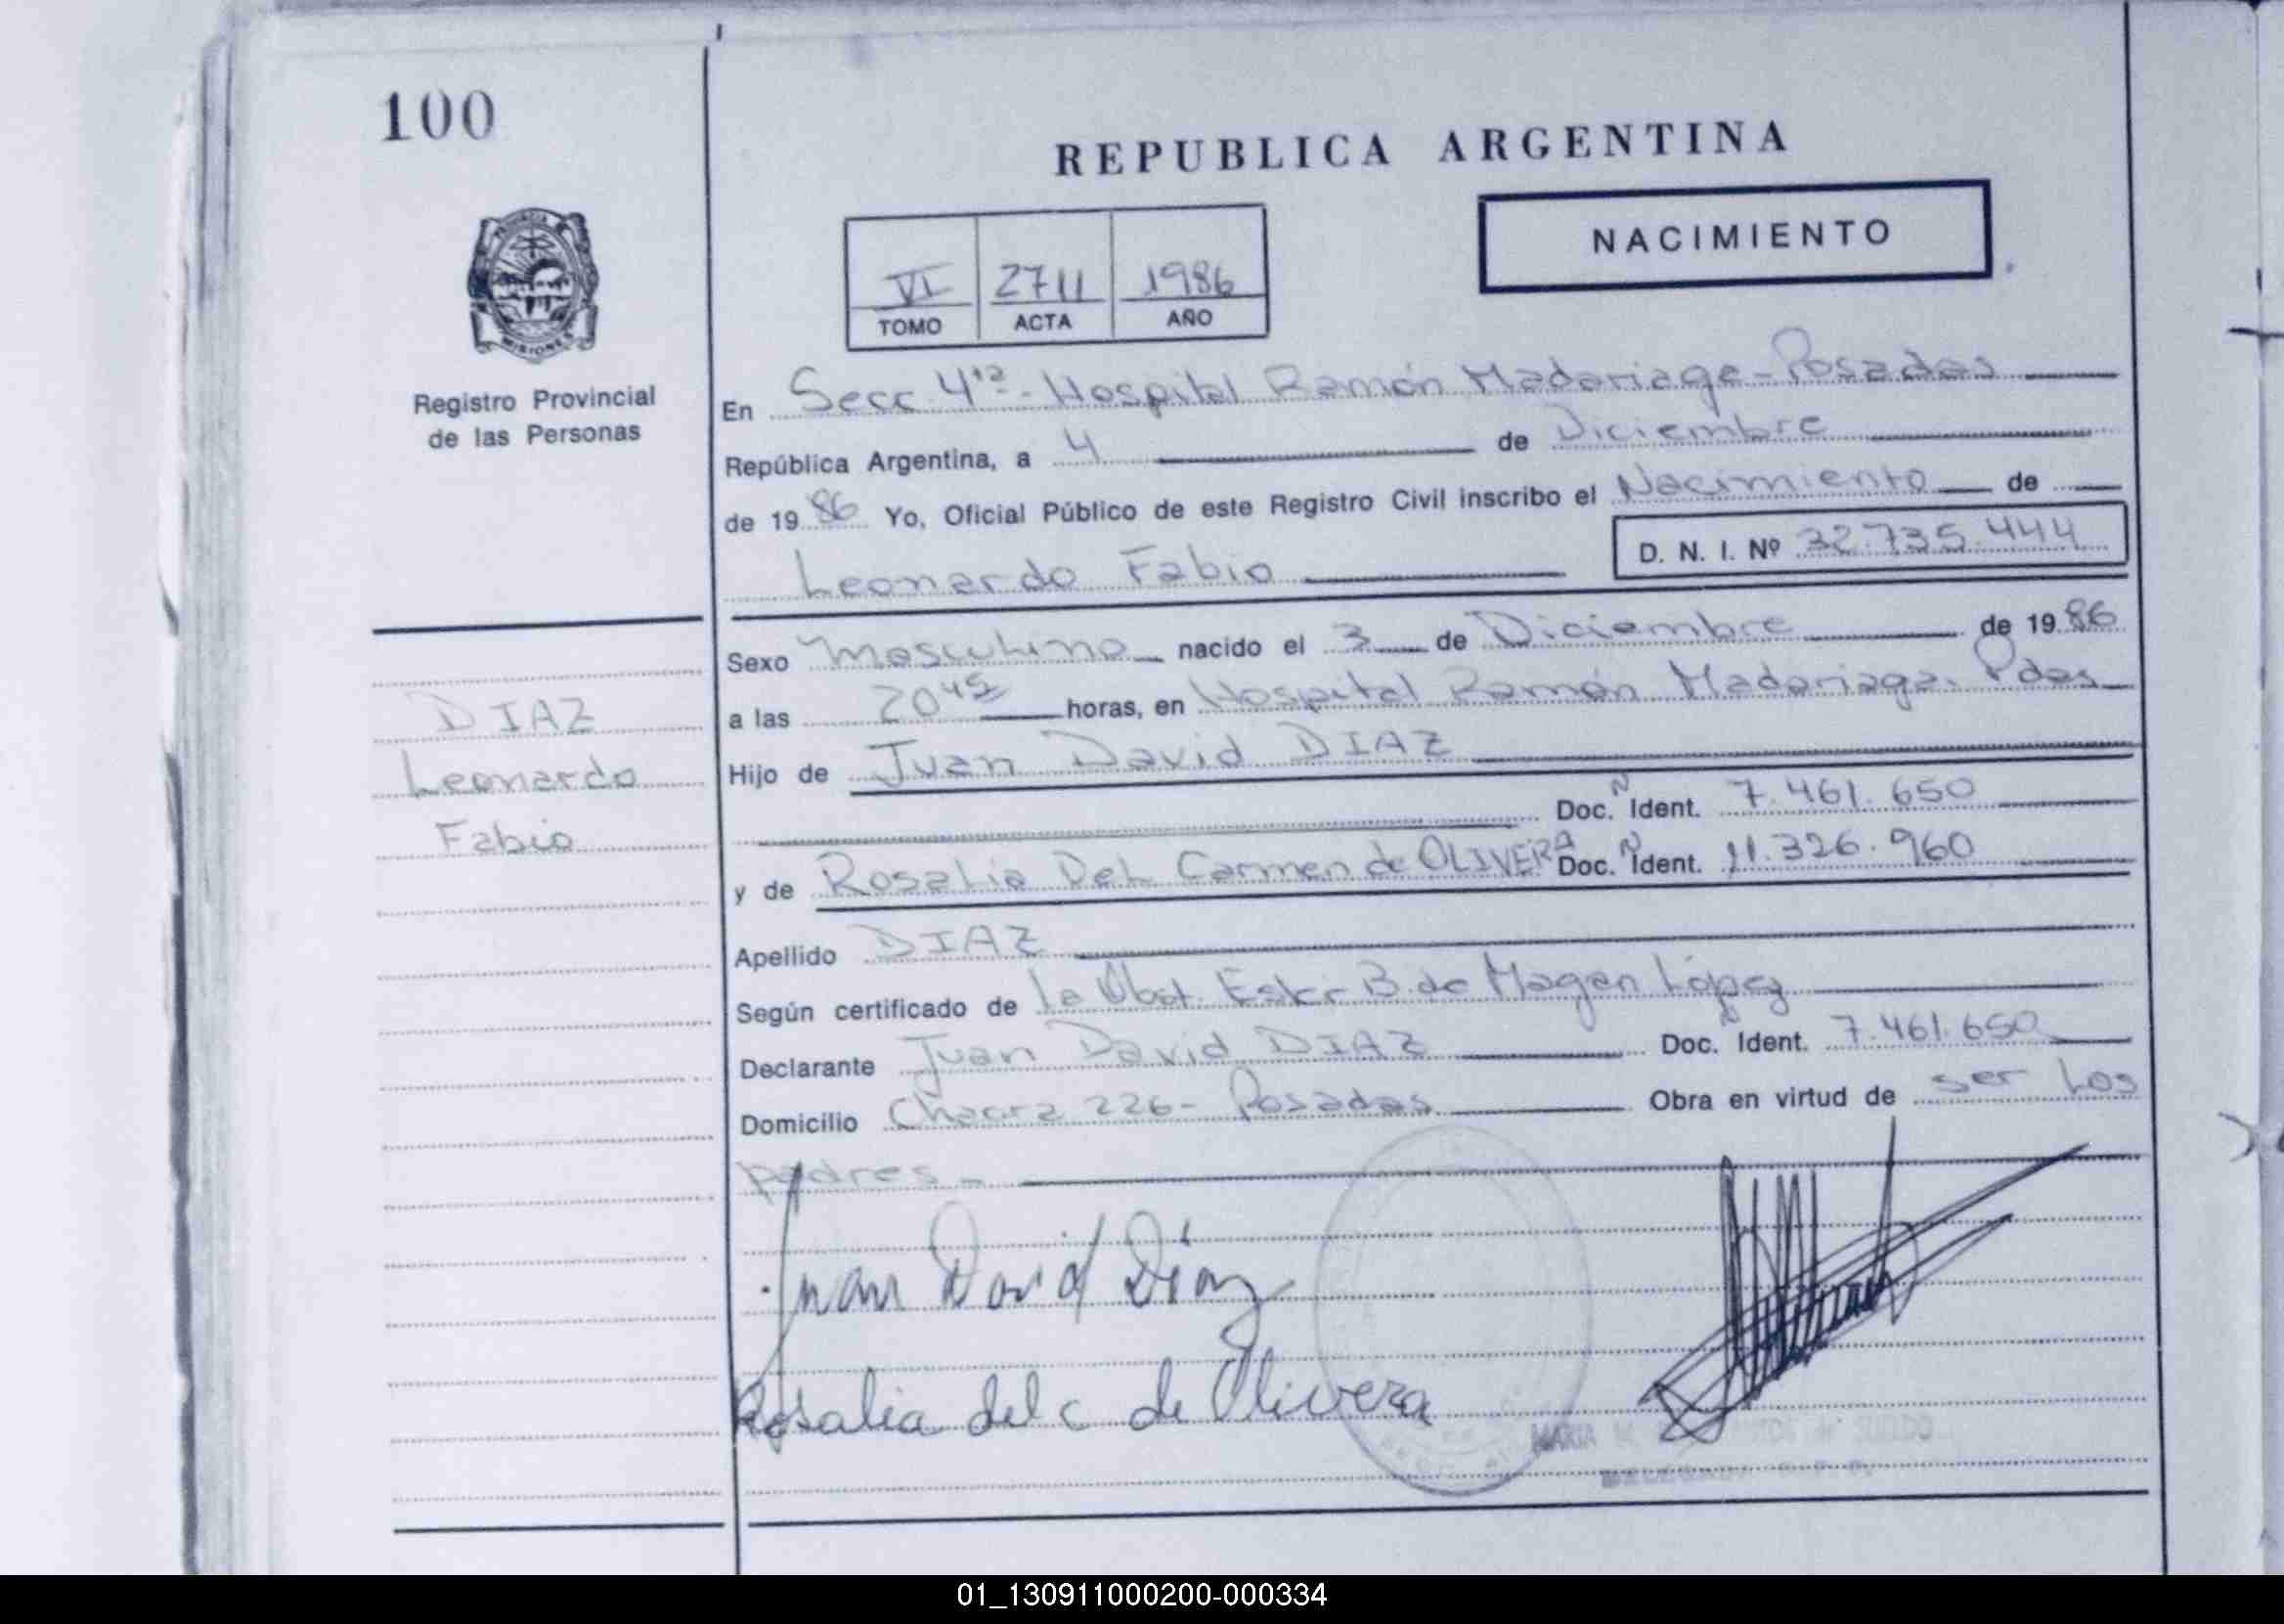 100
REPUBLICA ARGENTINA
NACIMIENTO
VI 2711 1986
TOMO ACTA AÑO
PROVINCIA DE
MISIONES
Registro Provincial
de las Personas
En Secc 4ta - Hospital Ramón Madariaga - Posadas
República Argentina, a 4 de Diciembre
de 1986 Yo, Oficial Público de este Registro Civil inscribo el Nacimiento de
Leonardo Fabio D. N. I. Nº 32.735.444
Sexo Masculino nacido el 3 de Diciembre de 1986
a las 20 45 horas, en Hospital Ramón Madariaga. Pdas
Hijo de Juan David DIAZ
Doc. N Ident. 7.461.650
y de Rosalia Del Carmen de OLIVERA Doc. N Ident. 11.326.960
Apellido DIAZ
Según certificado de la Obst. Ester B. de Magan López
Declarante Juan David DIAZ Doc. N Ident. 7.461.650
Domicilio 226 - Posadas Obra en virtud de ser los
padres -
DIAZ
Leonardo
Fabio
Juan David Díaz
Rosalia del c de Olivera
MARIA SUELDO
01_130911000200-000334